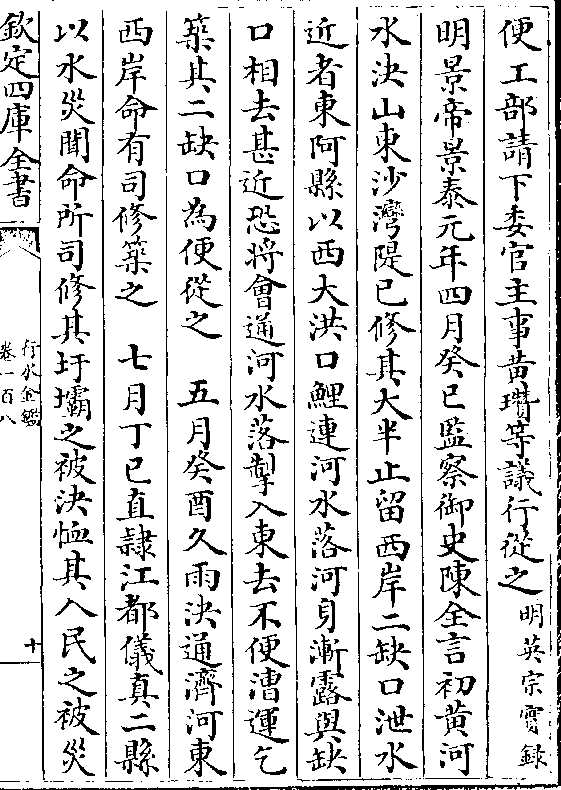 便工部請下委官主事黄瓚等議行從之明英宗實録
明景帝景泰元年四月癸巳監察御史陳全言初黄河
水決山東沙灣隄已修其大半止留西岸二缺口泄水
近者東阿縣以西大洪口鯉連河水落河身漸露與缺
口相去甚近恐將會通河水落掣入東去不便漕運乞
築其二缺口為便從之　五月癸酉久雨決通濟河東
西岸命有司修築之　七月丁巳直隷江都儀真二縣
以水災聞命所司修其圩壩之被決恤其人民之被災
欽定四庫全書
行水金鑑
卷一百八
十